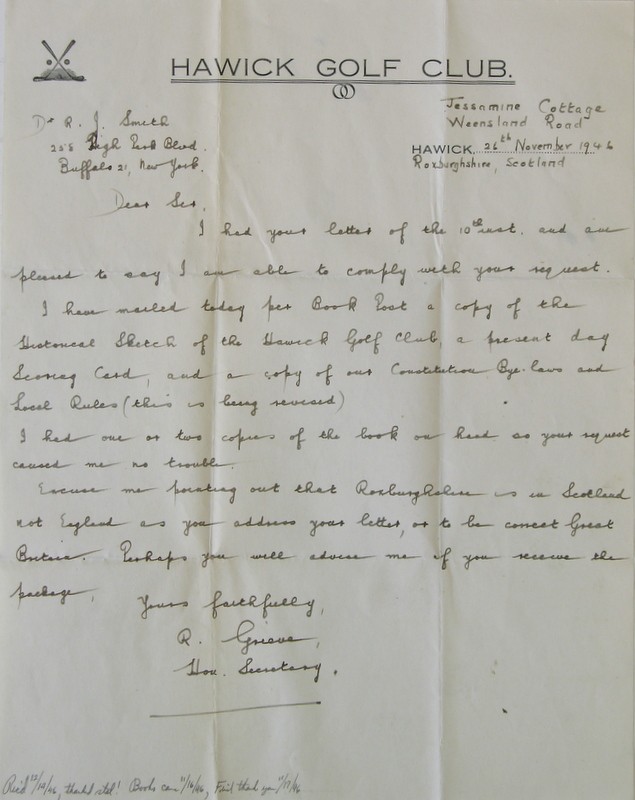 HAWICK GOLF CLUB.
Jessamine Cottage
Weensland Road
HAWICK, 26th November 1946
Roxburghshire, Scotland
Dr R. J. Smith
258 High Park Blvd.
Buffalo 21, New York.
Dear Sir,
I had your letter of the 10th inst. and am
pleased to say I am able to comply with your request.
I have mailed today per Book Post a copy of the
Historical Sketch of the Hawick Golf Club, a present day
Scoring Card, and a copy of our Constitution Bye-laws and
Local Rules (this is being revised)
I had one or two copies of the book on hand so your request
caused me no trouble.
Excuse me pointing out that Roxburghshire is in Scotland
not England as you address your letter, or to be correct Great
Britain. Perhaps you will advise me if you receive the
package,
Yours faithfully,
R. Grieve,
Hon. Secretary.
Rec'd 12/10/46, Books